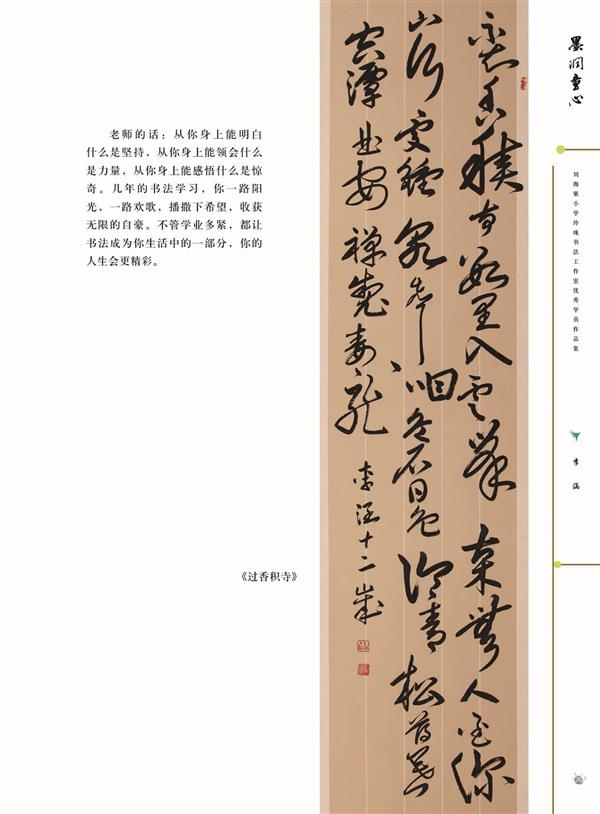 老师的话：从你身上能明白
什么是坚持，从你身上能领会什么
是力量，从你身上能感悟什么是惊
奇。几年的书法学习，你一路阳
光，一路欢歌，播撒下希望，收获
无限的自豪。不管学业多紧，都让
书法成为你生活中的一部分，你的
人生会更精彩。
《过香积寺》
不知香積寺數里入雲峯古木無人徑深
山何處鐘泉聲咽危石日色冷青松薄暮
空潭曲安禪製毒龍
李涵十二歲
墨润童心
刘海粟小学玲珑书法工作室优秀学员作品集
李涵